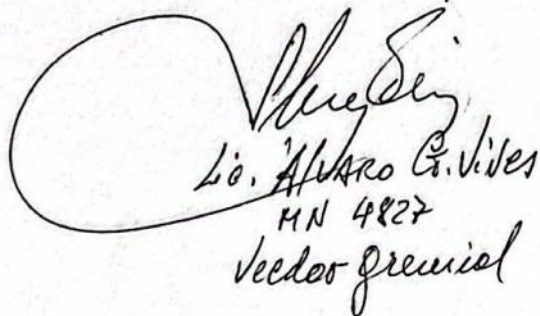 Lic. Álvaro G. Vives
MN 4827
Veedor gremial